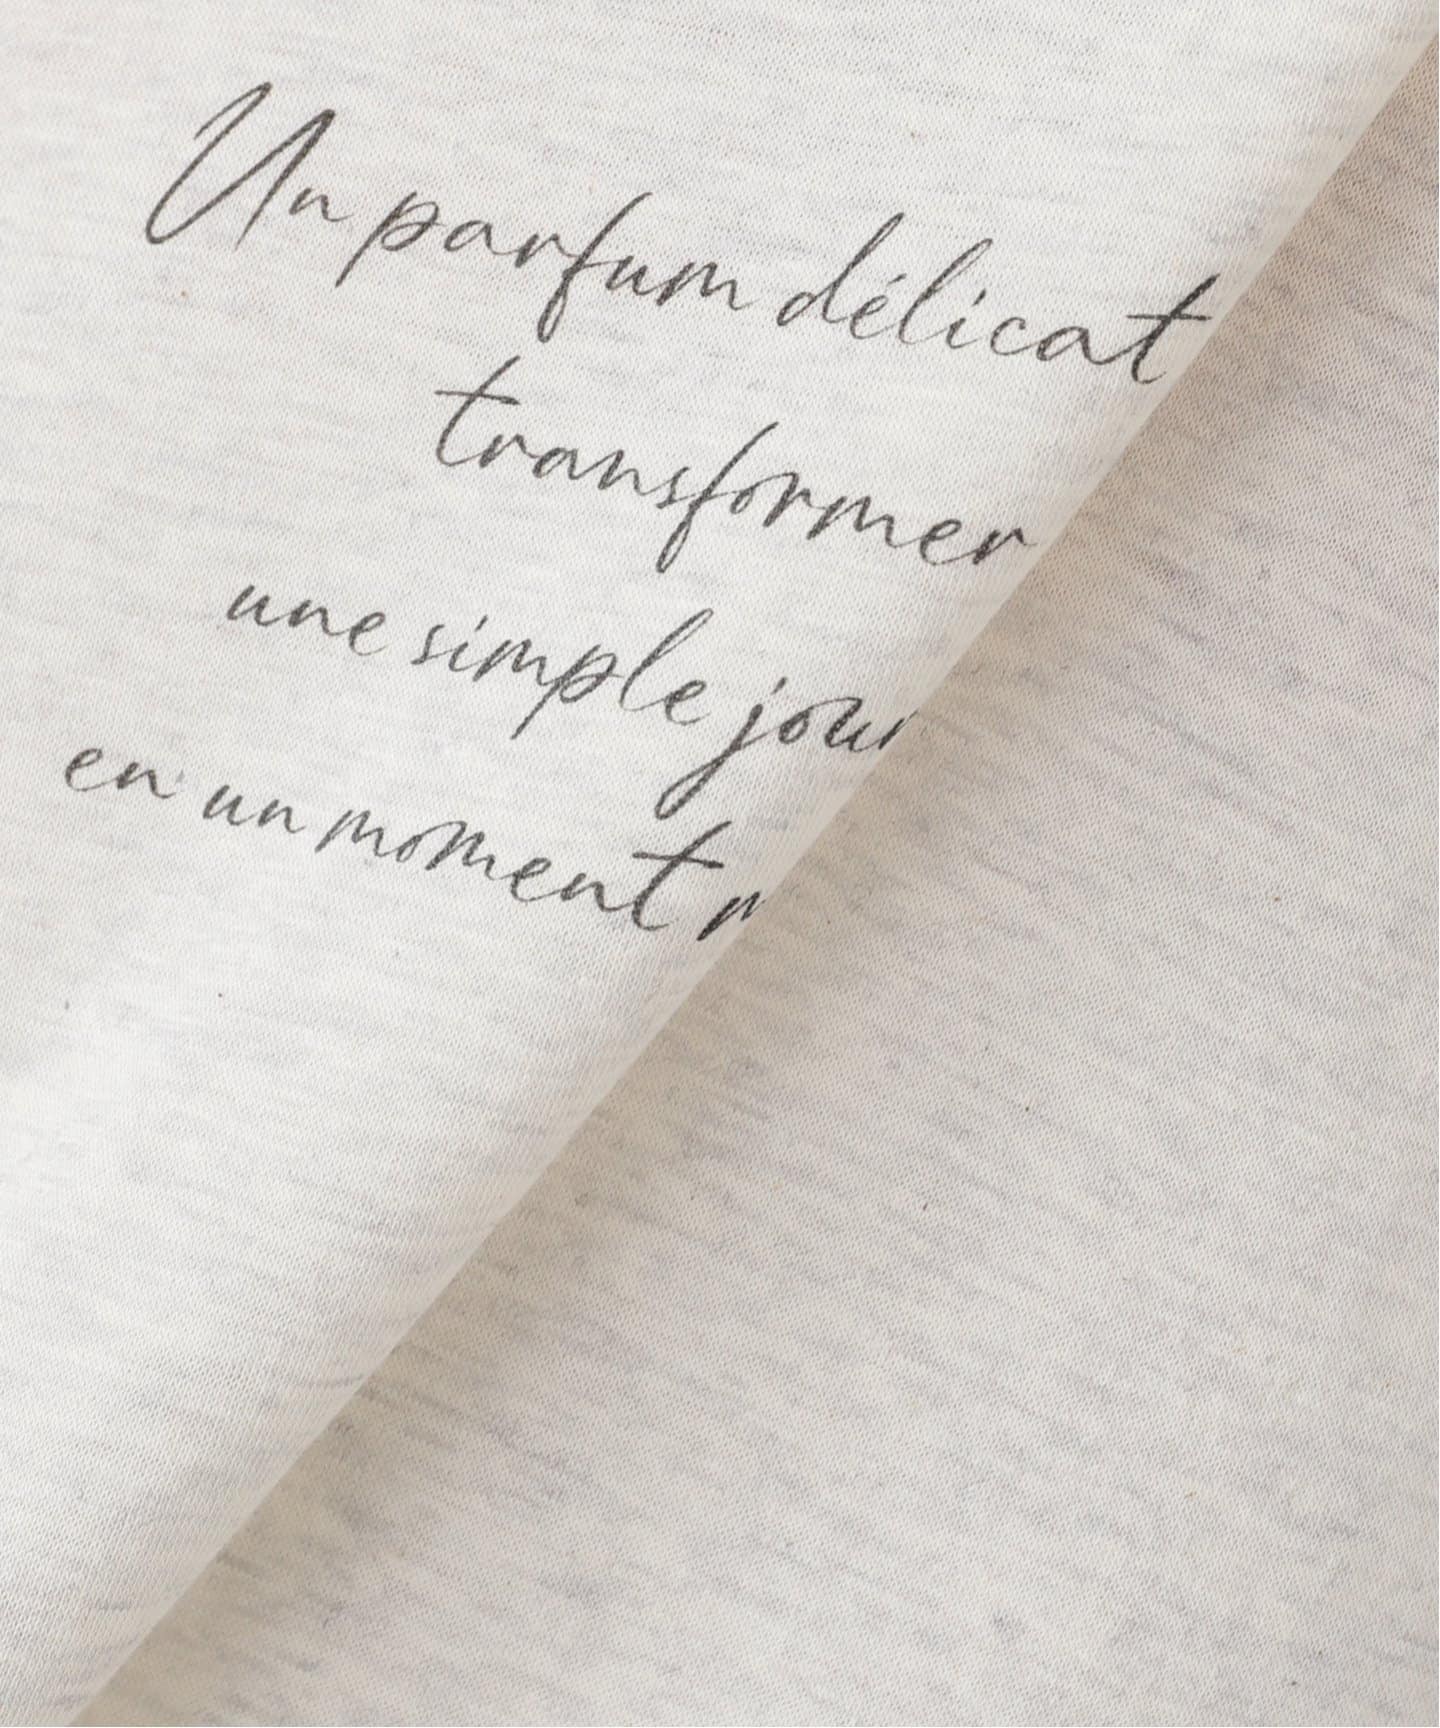 Un parfum délicat
transformer
une simple jour
en un moment